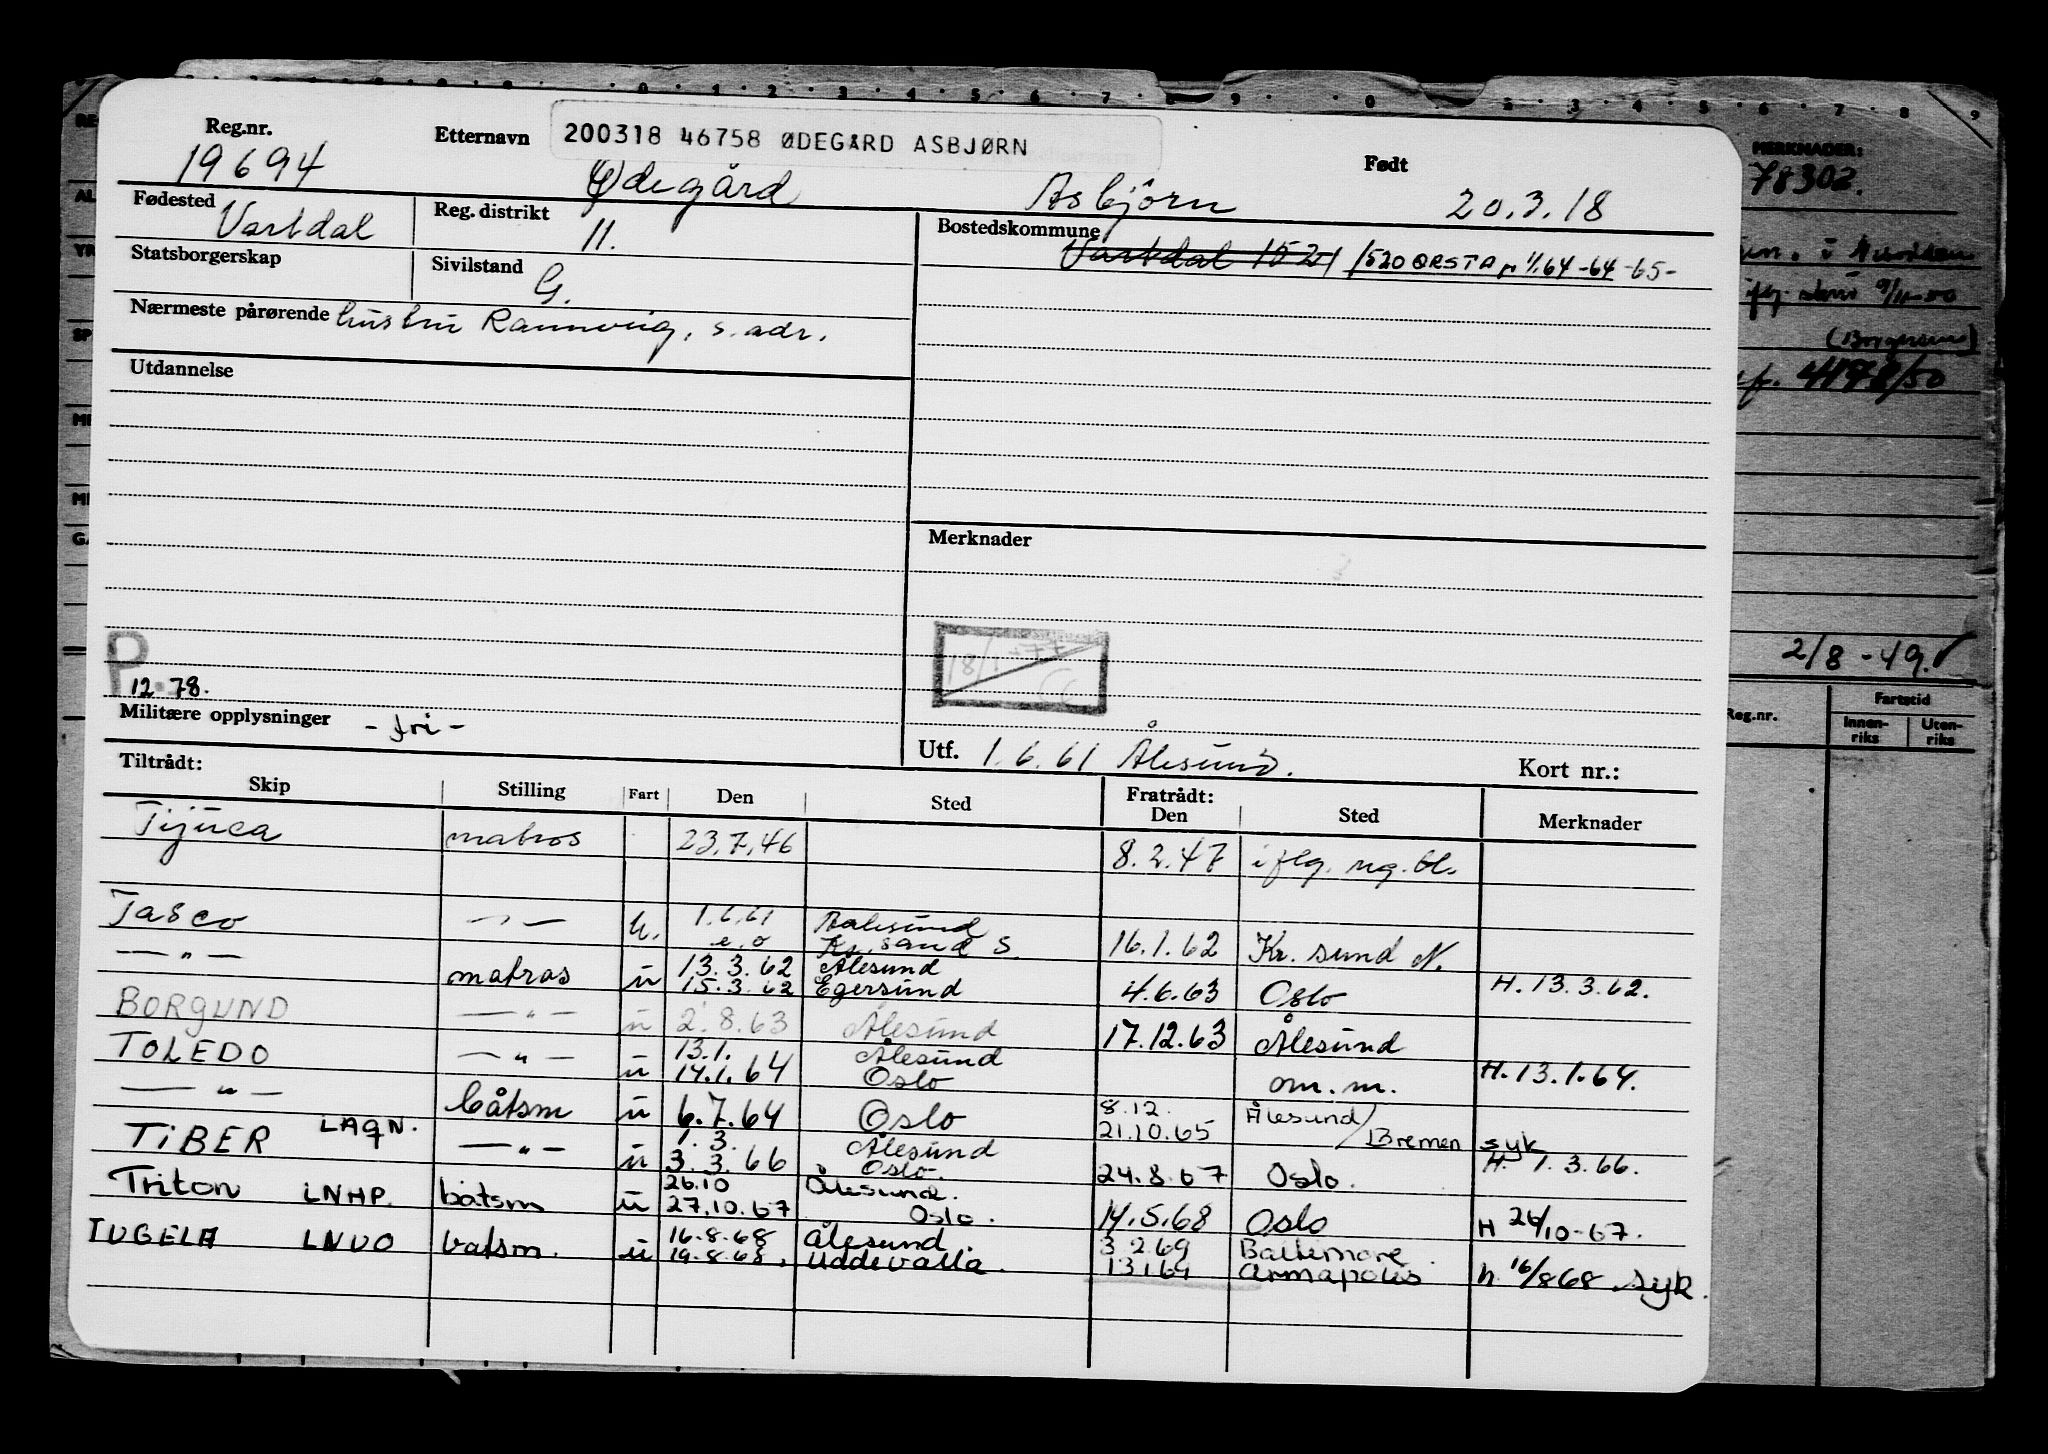 Reg.nr. Etternavn 200318 46758 ØDEGÅRD ASBJØRN Født
19694 Ødegård Asbjörn 20.3.18
Fødested Vartdal Reg. distrikt 11. Bostedskommune Vartdal 1521 1520 ØRSTA pr 1/1.64 -64 -65-
Statsborgerskap Sivilstand G.
Nærmeste pårørende hustru Rannveig, s. adr.
Utdannelse
Merknader
18/1-77
P.
12.78.
Militære opplysninger - fri -
Utf. 1.6.61 Ålesund. Kort nr.:
Tiltrådt: Fratrådt:
Skip Stilling Fart Den Sted Den Sted Merknader
Tijuca matros 23.7.46 8.2.47 iflg. rig. bl.
Tasco — " — u. 1.6.61 Aalesund
e.o Kr. sand S. 16.1.62 Kr. sund N.
— " — matros u 13.3.62 Ålesund
15.3.62 Egersund 4.6.63 Oslo H. 13.3.62.
BORGUND — " — u 2.8.63 Ålesund 17.12.63 Ålesund
TOLEDO — " — u 13.1. Ålesund
14.1.64 Oslo om. m. H. 13.1.64.
— " — båtsm u 6.7.64 Oslo 8.12. Ålesund/
21.10.65 Bremen syk
TIBER LAQN. — " — u 1.3. Ålesund
3.3.66 Oslo. 24.8.67 Oslo. H. 1.3.66.
Triton LNHP. båtsm u 26.10 Ålesund.
27.10.67 Oslo. 14.5.68 Oslo H 26/10-67.
TUGELA LNVO batsm. u 16.8.68 Ålesund. 3.2.69 Baltimore
19.8.68. Uddevalla. 13.1.69 Armapolis h 16/868 syk.
MERKNADER:
78302.
(Borgersen)
4178/50
2/8 -49.
Reg.nr. Fartstid
Innen-riks Uten-riks